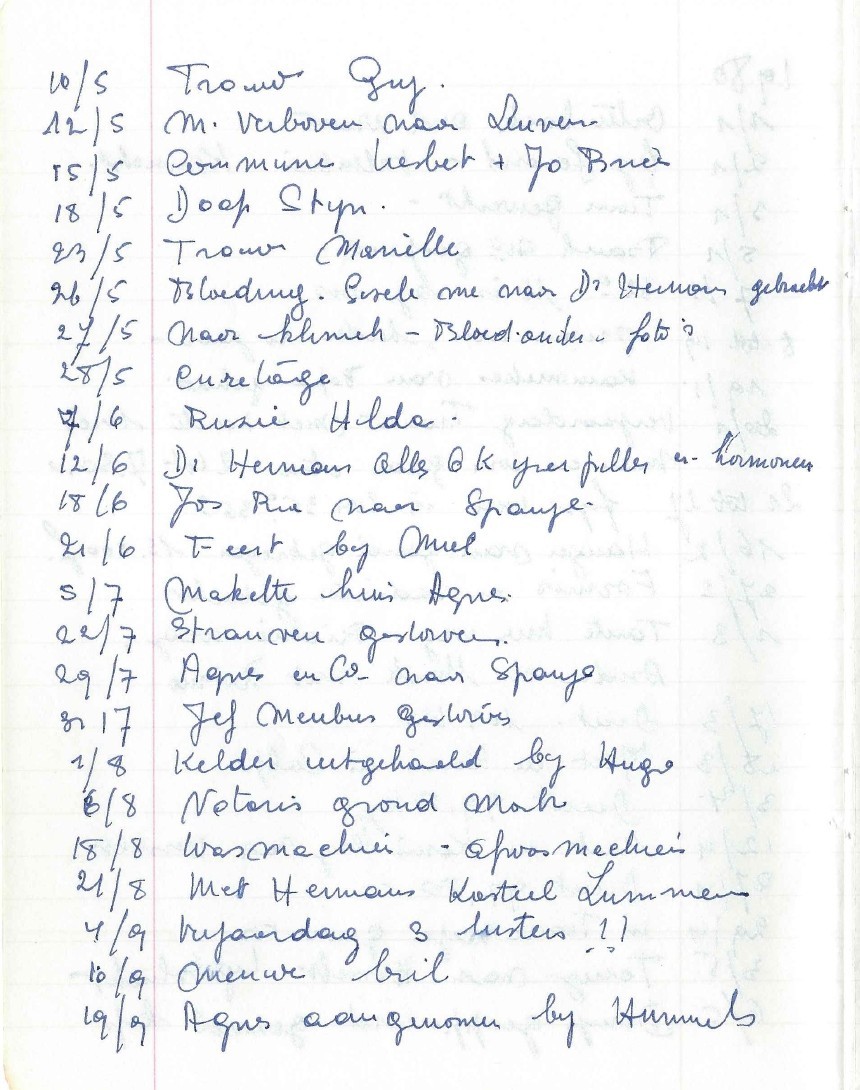 10/5 Trouw Guy.
12/5 M. Verboven naar Leuven
15/5 Communie Liesbet + Jo Briës
18/5 Doop Styn.
23/5 Trouw Mariëlle
26/5 Bloeding. me naar Dr Hermans gebracht
27/5 naar kliniek - Bloed.onder. foto's
28/5 Curetage
7/6 Ruzie Hilda.
12/6 Dr Hermans alles OK yzerpillen en hormonen
18/6 Jos Ria naar Spanje.
21/6 Feest by Miel
5/7 Makette huis Agnes.
22/7 Stranven gestorven.
29/7 Agnes en Co- naar Spanje
31/7 Jef Meubus gestorven
1/8 Kelder uitgehaald by Hugo
6/8 Notaris grond
18/8 Wasmachien - afwasmachien
21/8 Met Hermans Kasteel Lummen
4/9 Verjaardag 3 zusters !!
10/9 nieuwe bril
19/9 Agnes aangenomen by Hummels